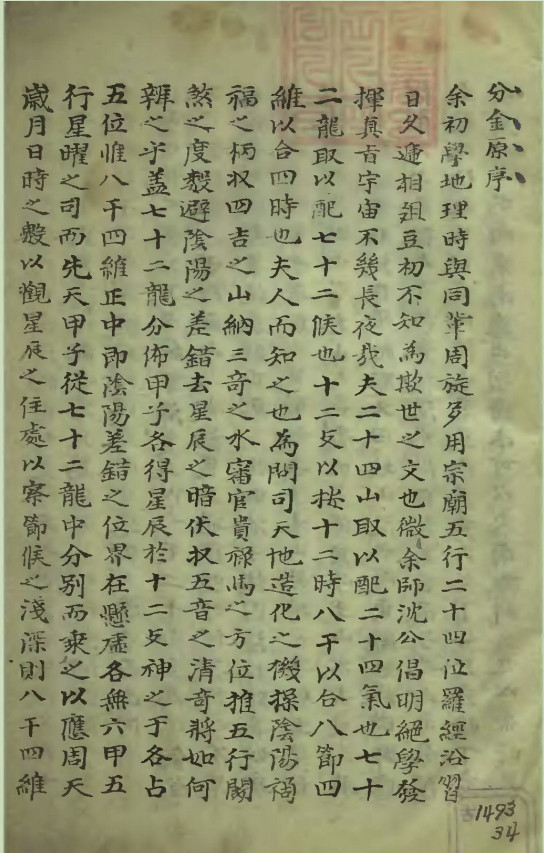 分金原序
余初學地理時與同輩周旋多用宗廟五行二十四位羅經沿習
日久遞相俎豆初不知為欺世之文也微余師沈公倡明絕學發
揮真旨宇宙不幾長夜哉夫二十四山取以配二十四氣也七十
二龍取以配七十二候也十二支以按十二時八干以合八節四
維以合四時也夫人而知之也為問司天地造化之機操陰陽禍
福之柄收四吉之山納三奇之水審官貴祿馬之方位推五行關
煞之度數避陰陽之差錯去星辰之暗伏收五音之清奇將如何
辨之乎蓋七十二龍分佈甲子各得星辰於十二支神之于各占
五位惟八干四維正中即陰陽差錯之位界在懸虛各無六甲五
行星曜之司而先天甲子從七十二龍中分別而乘之以應周天
歲月日時之數以觀星辰之住處以察節候之淺深則八干四維
1493
34